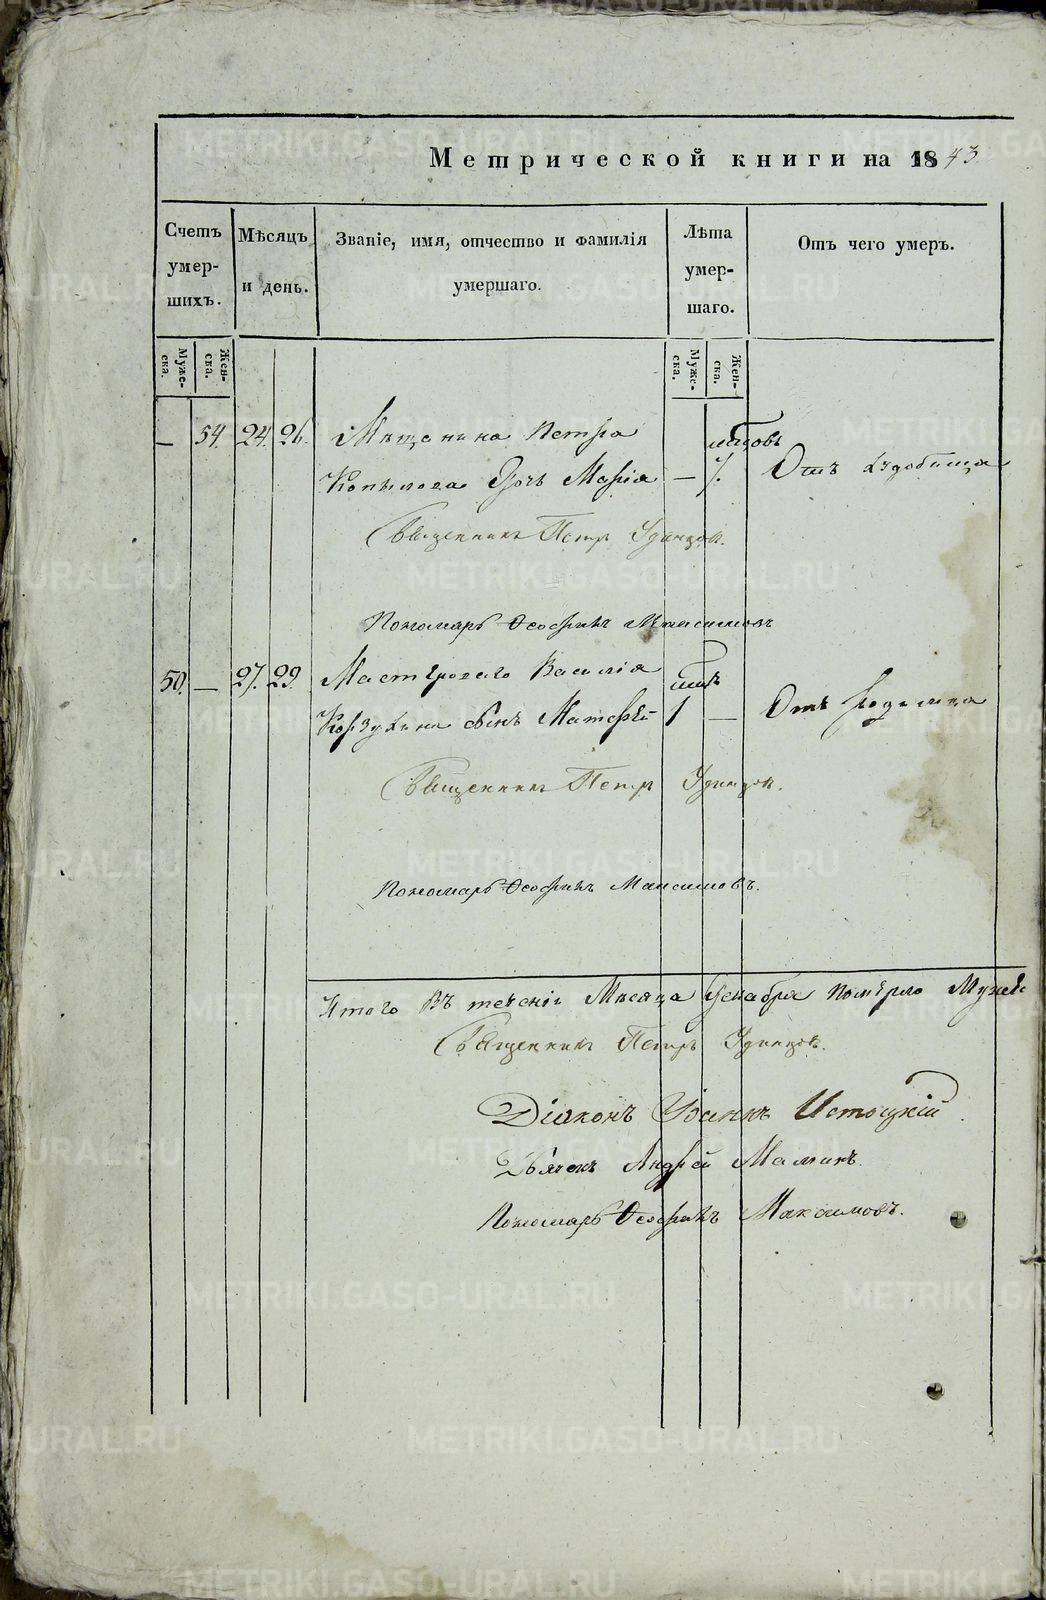 Метрической книги на 1843
Счетъ умершихъ.
Мѣсяцъ и день.
Званіе, имя, отчество и фамилія умершаго.
Лѣта умершаго.
Отъ чего умеръ.
Мужеска.
Женска.
Мужеска.
Женска.
— 54. 24. 26. Мѣщанина Петра
Копылова дочь Марія —
Священникъ Петръ Удинцовъ.
Пономарь Ѳеофанъ Максимовъ
50. — 27. 29. Мастероваго Василія
Корзухина сынъ Матѳей 1 — Отъ родимца
Священникъ Петръ Удинцовъ.
Пономарь Ѳеофанъ Максимовъ.
Итого въ теченіи Месяца Декабря померло Мужес
Священникъ Петръ Удинцовъ.
Діаконъ Іоаннъ Истоцкій.
Дьячекъ Андрей Маминъ.
Пономарь Ѳеофанъ Максимовъ.
METRIKI.GASO-URAL.RU